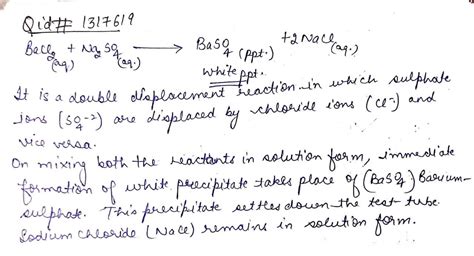 Qid# 1317619
BaCl2 (aq.) + Na2SO4 (aq.) ⟶ BaSO4 (ppt.) + 2NaCl (aq.)
white ppt.
It is a double displacement reaction in which sulphate
ions (SO4-2) are displaced by chloride ions (Cl-) and
vice versa.
On mixing both the reactants in solution form, immediate
formation of white precipitate takes place of (BaSO4) Barium-
sulphate. This precipitate settles down the test tube
Sodium chloride (NaCl) remains in solution form.